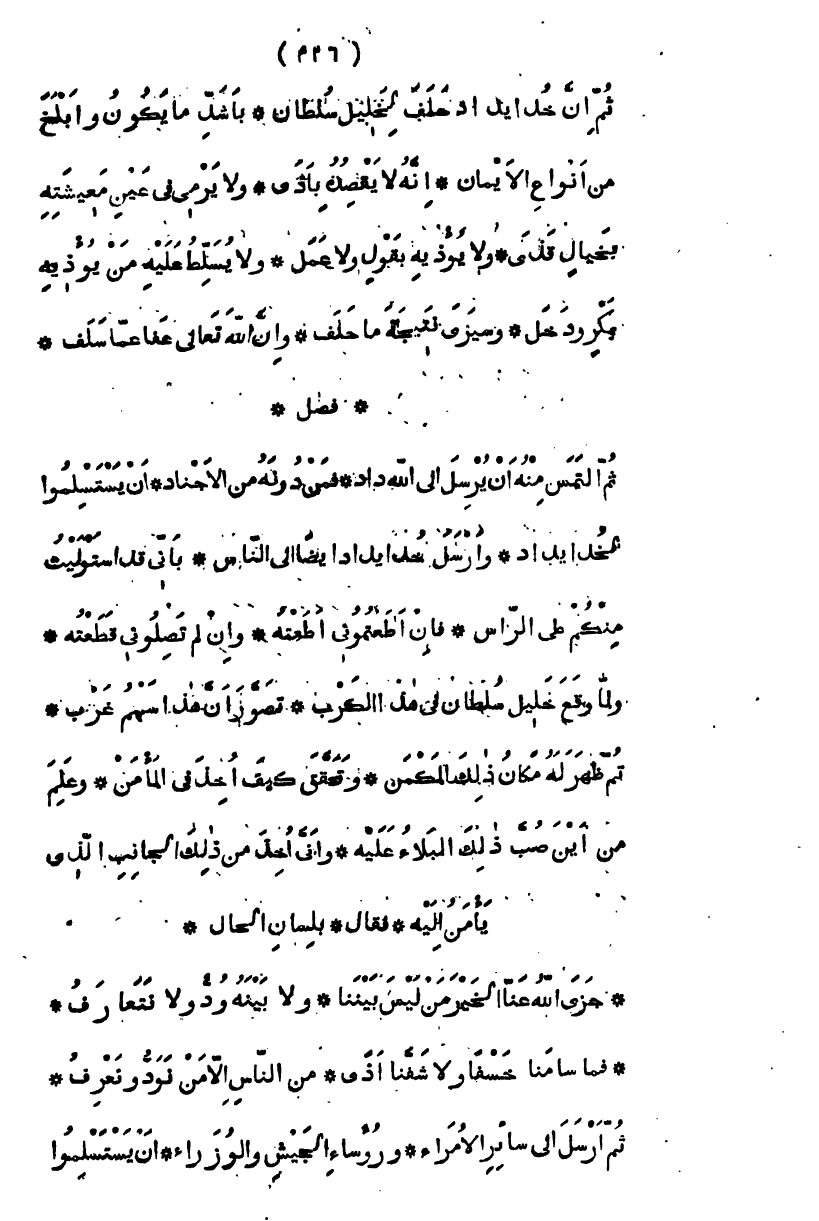 (٣٣٦)
ثُمَّ اِنَّ خُدايدادَ حَلَفَ لِخَلِيلِ سُلْطان * بِاَشَدِّ ما يَكُونُ وابْلَغَ
من اَنْواعِ الاَيْمان * اِنَّهُ لا يَقْصِدُهُ بِاَذًى * ولا يَرْمِى فى عَيْنِ مَعِيشَتِهِ
بِخيالٍ قَذًى * ولا يُؤْذِيهِ بِقَوْلٍ ولا عَمَل * ولا يُسَلِّطُ عَلَيْهِ مَنْ يُؤْذِيهِ
بِمَكْرٍ ودَخَل * وسيَرَى نَتِيجَةَ ما حَلَف * واِنَّ اللّهَ تَعالى عَفا عمّا سَلَف *
* فصْل *
ثُمَّ التَمَسَ مِنْهُ اَنْ يُرْسِلَ الى اللّه داد * فمَنْ دُونَهُ من الاَجْناد * اَنْ يَسْتَسْلِمُوا
لِخُدايداد * واَرْسَلَ خُدايداد ايضًا الى النّاس * بِاَنِّى قد استَوْلَيْتُ
مِنْكُمْ على الرّاس * فاِنْ اَطَعْتُمُونى اَطَعْتُه * واِنْ لم تَصِلُونى قَطَعْتُه *
ولمّا وقَعَ خَلِيل سُلْطان فى هٰذا الكَرْب * تصَوَّرَ اَنَّ هٰذا سَهْمُ غَرْب *
ثُمَّ ظَهَرَ لَهُ مَكانُ ذٰلِكَ المَكْمَن * وتَحَقَّقَ كيفَ اُخِذَ فى المَأْمَن * وعَلِمَ
من اَيْنَ صُبَّ ذٰلِكَ البَلاءُ عَلَيْه * واَنَّى اُخِذَ من ذٰلِكَ الجانِبِ الّذِى
يَأْمَن اِلَيْه * فقال * بلِسانِ الحال *
* جَزَى اللّهُ عَنّا الخَيْرَ مَنْ لَيْسَ بَيْنَنا * ولا بَيْنَهُ وُدٌّ ولا نَتَعارَفُ *
* فما سامَنا خَسْفًا ولا شَفَّنا اَذًى * من النّاسِ اِلّا مَنْ نَوَدُّ ونَعْرِفُ *
ثُمَّ اَرْسَلَ الى سائِرِ الاُمَراء * ورُؤَساءِ الجَيْشِ والوُزَراء * اَنْ يَسْتَسْلِمُوا